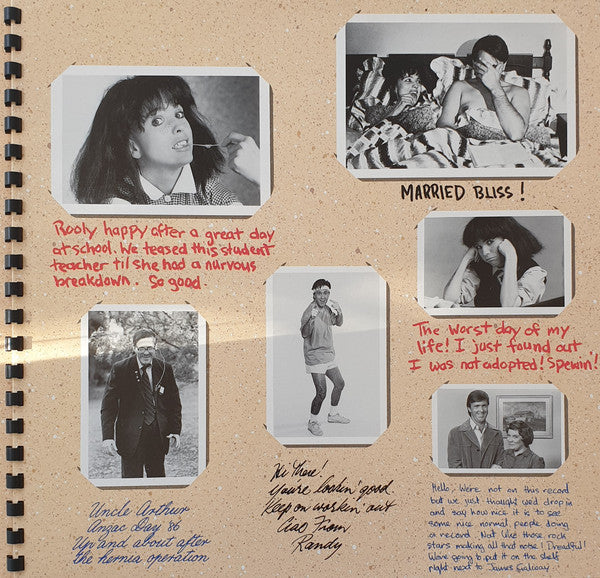 Rooly happy after a great day
at school. We teased this student
teacher til she had a nurvous
breakdown. So good.
MARRIED BLISS!
The worst day of my
life! I just found out
I was not adopted! Spewin'!
Uncle Arthur
Anzac Day 86
Up and about after
the hernia operation
Hi There!
You're lookin' good
keep on workin' out
Ciao From
Randy
Hello, We're not on this record
but we just thought we'd drop in
and say how nice it is to see
some nice normal people doing
a record. Not like those rock
stars making all that noise! Dreadful!
We're going to put it on the shelf
right next to James Galway.